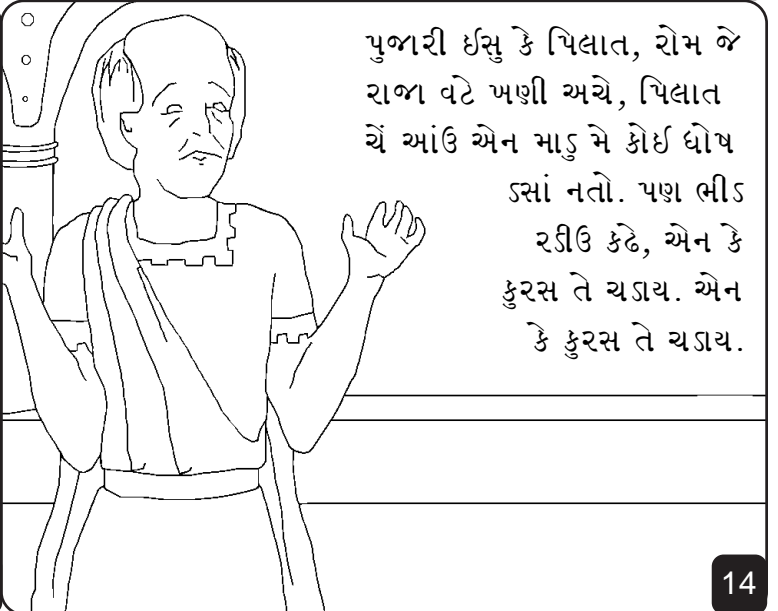 પુજારી ઈસુ કે પિલાત, રોમ જે
રાજા વટે ખણી અચે, પિલાત
ચેં આંઉ એન માડુ મે કોઈ ધોષ
ડસાં નતો. પણ ભીડ
રડીઉ કંઢે, એન કે
કુરસ તે ચડાય. એન
કે કુરસ તે ચડાય.
14